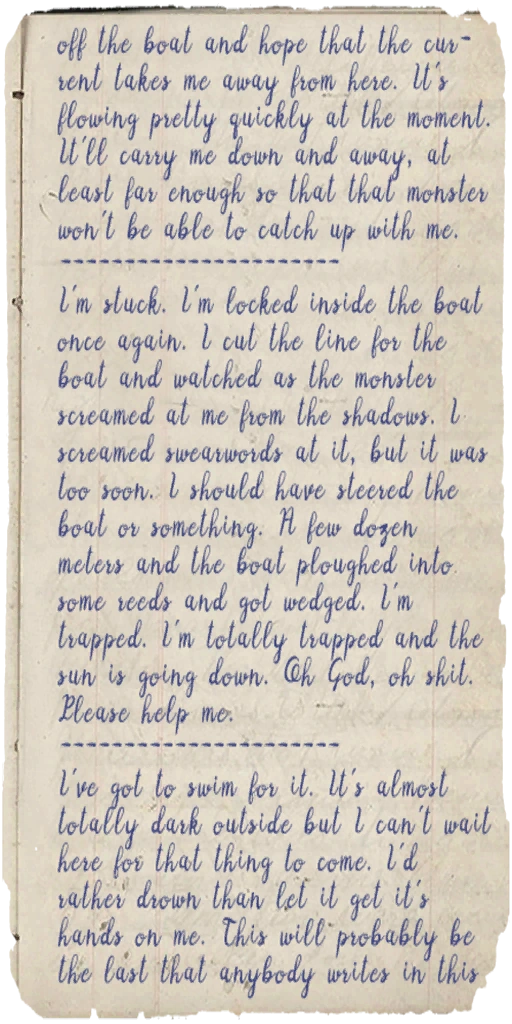 off the boat and hope that the cur-
rent takes me away from here. It's
flowing pretty quickly at the moment.
It'll carry me down and away, at
least far enough so that that monster
won't be able to catch up with me.
----------------------
I'm stuck. I'm locked inside the boat
once again. I cut the line for the
boat and watched as the monster
screamed at me from the shadows. I
screamed swearwords at it, but it was
too soon. I should have steered the
boat or something. A few dozen
meters and the boat ploughed into
some reeds and got wedged. I'm
trapped. I'm totally trapped and the
sun is going down. Oh God, oh shit.
Please help me.
----------------------
I've got to swim for it. It's almost
totally dark outside but I can't wait
here for that thing to come. I'd
rather drown than let it get it's
hands on me. This will probably be
the last that anybody writes in this